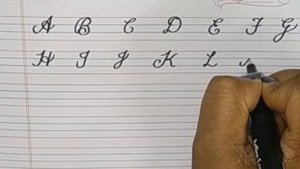 A B C D E F G
H I J K L